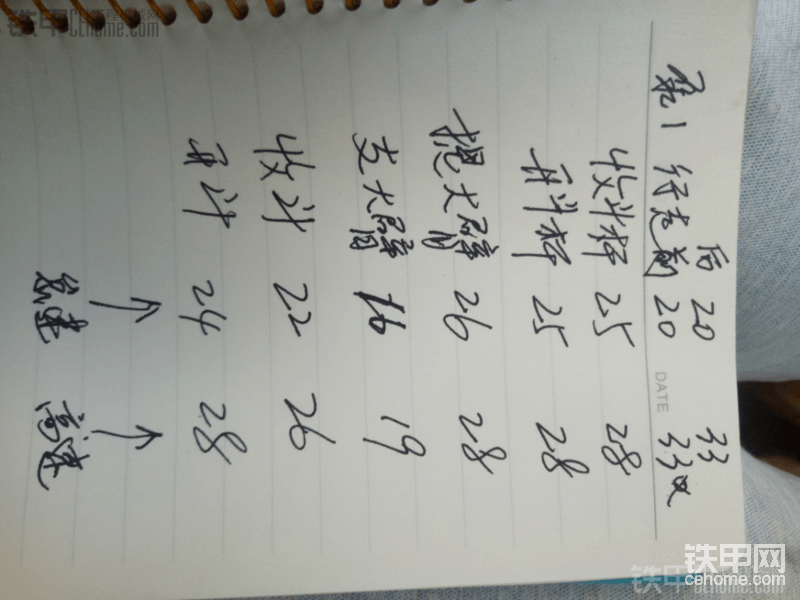 铁甲网
cehome.com
后 20 33
行走前 20 33
DATE
收斗杆 25 28
开斗杆 25 28
提大臂 26 28
支大臂 16 19
收斗 22 26
开斗 24 28
↑ ↑
怠速 高速
铁甲网
cehome.com